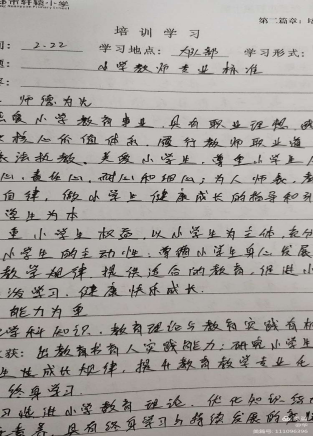 轩辕小学
第二篇章:
培训学习
间: 2.22 学习地点: 学习形式:
题: 小学教师专业标准
容:
师德为先
热爱小学教育事业,具有职业理想,践
核心价值体系,履行教师职业道
依法执教。关爱小学生,尊重小学生人
心、责任心、耐心和细心;为人师表,教
自律,做小学生健康成长的指导和引
学生为本
重小学生权益,以小学生为主体,充分
小学生的主动性;遵循小学生身心发展
教学规律,提供适合的教育,促进小
泼学习、健康快乐成长.
能力为重
学科知识、教育理论与教育实践有机
突出教书育人实践能力;研究小学生
生成长规律,提升教育教学专业化
终身学习
习先进小学教育理论,优化知识结
素养,具有终身学习与持续发展的意